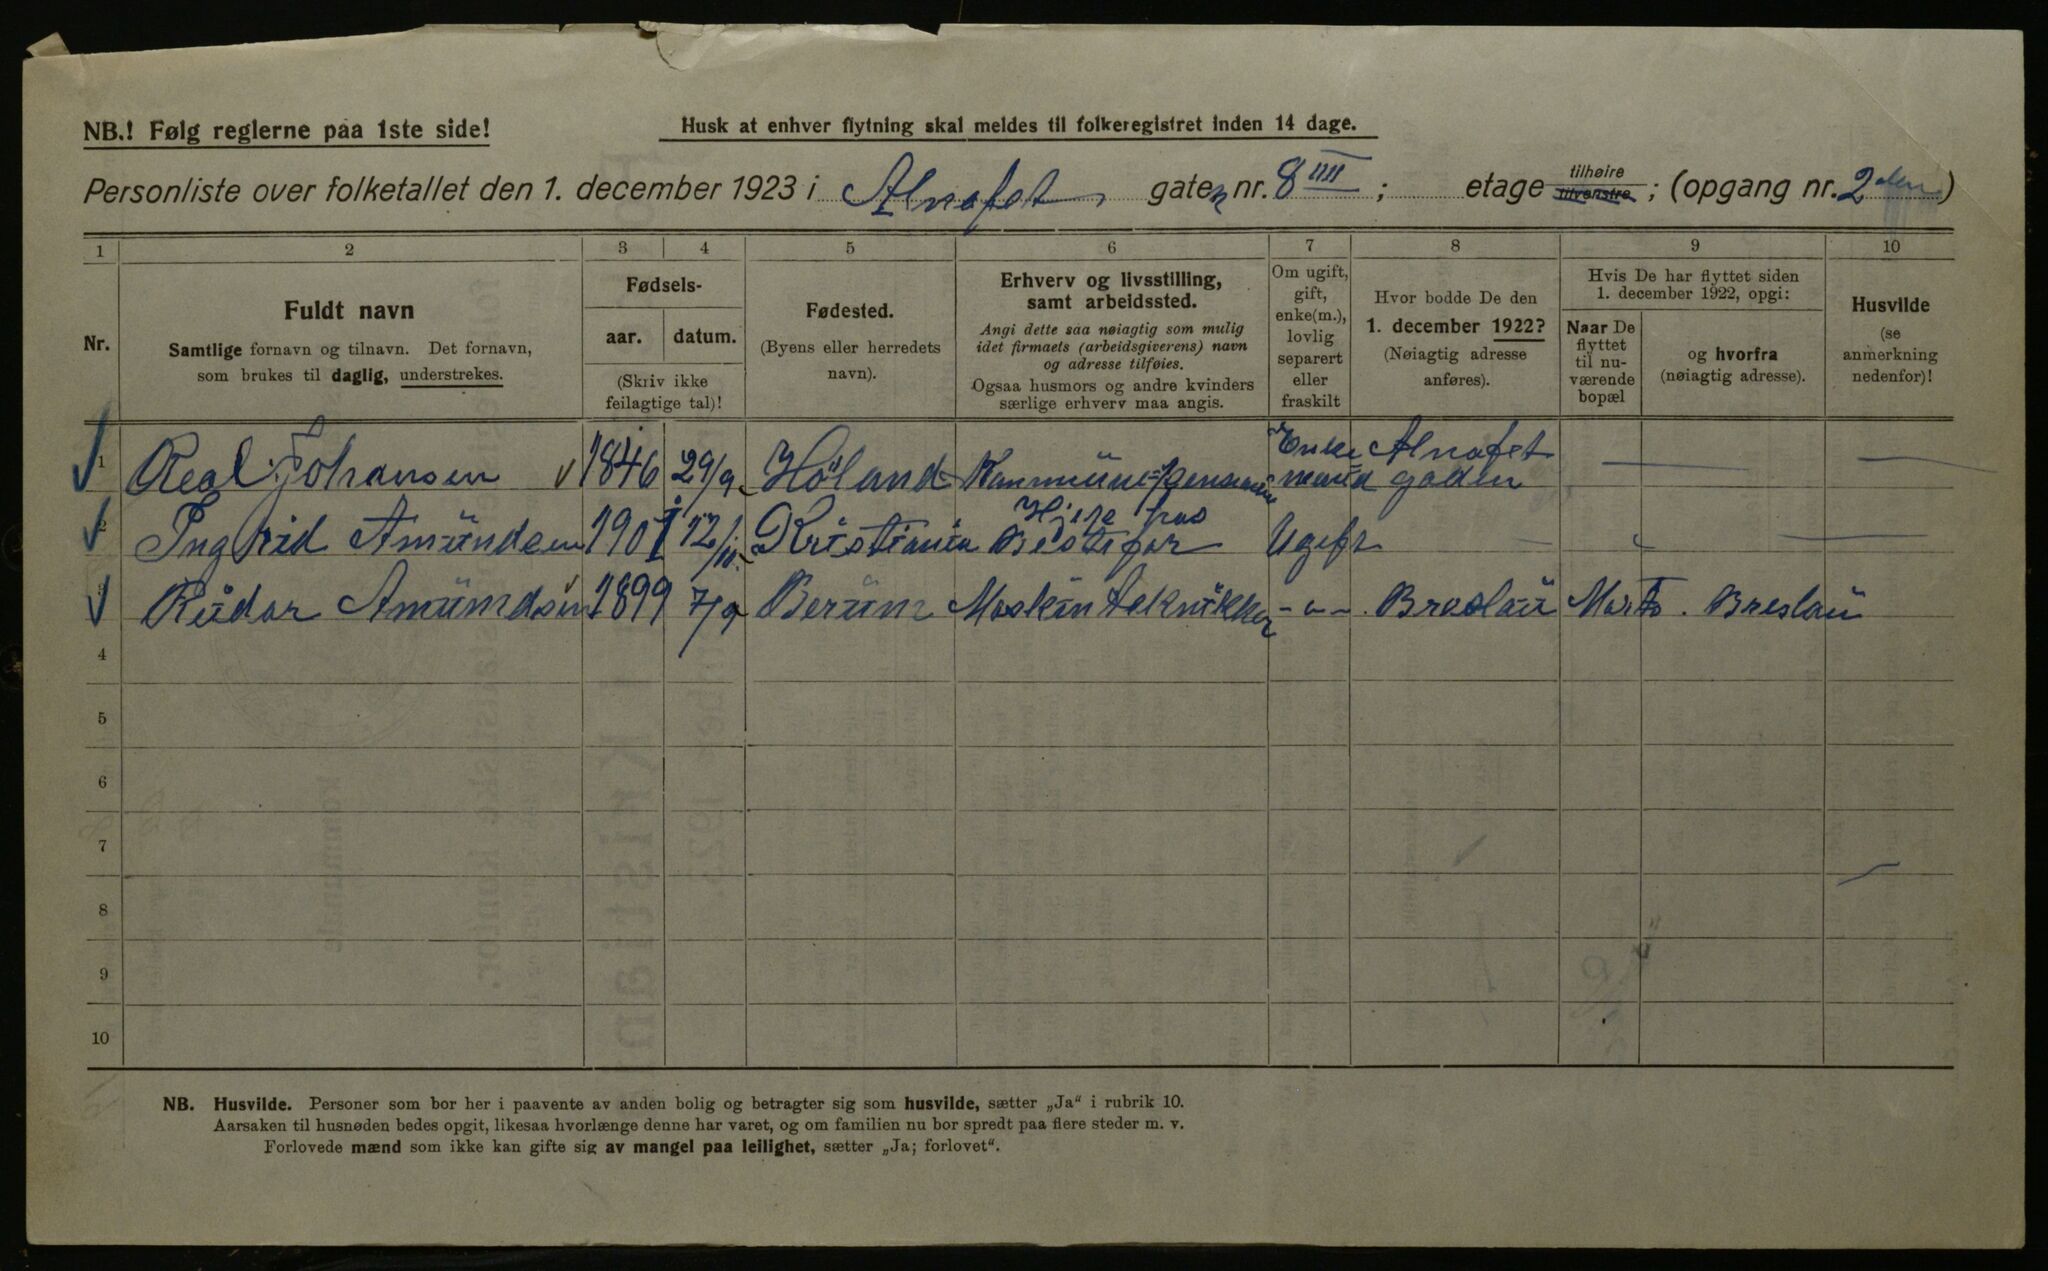 NB.! Følg reglerne paa 1ste side!
Husk at enhver flytning skal meldes til folkeregistret inden 14 dage.
Personliste over folketallet den 1. december 1923 i Alnafet gaten nr. 8 IIII ; etage tilhøire tilvenstre ; (opgang nr. 2den)
1 2 3 4 5 6 7 8 9 10
Nr.
Fuldt navn
Samtlige fornavn og tilnavn. Det fornavn,
som brukes til daglig, understrekes.
Fødsels-
aar. datum.
(Skriv ikke
feilagtige tal)!
Fødested.
(Byens eller herredets
navn).
Erhverv og livsstilling,
samt arbeidssted.
Angi dette saa nøiagtig som mulig
idet firmaets (arbeidsgiverens) navn
og adresse tilføies.
Ogsaa husmors og andre kvinders
særlige erhverv maa angis.
Om ugift,
gift,
enke(m.),
lovlig
separert
eller
fraskilt
Hvor bodde De den
1. december 1922?
(Nøiagtig adresse
anføres).
Hvis De har flyttet siden
1. december 1922, opgi:
Naar De
flyttet
til nu-
værende
bopæl
og hvorfra
(nøiagtig adresse).
Husvilde
(se
anmerkning
nedenfor)!
1 Johansen 1846 29/9 Höland Enke= Alnafet
mand gaden
2 Ingrid Amundsen 1901 12/10 Kristiania Hjelp hos
Bestefar Ugift
3 Reidar Amundsen 1899 7/9 Berum Maskin teknikker -"- Breslau Marts. Breslau
4
5
6
7
8
9
10
NB. Husvilde. Personer som bor her i paavente av anden bolig og betragter sig som husvilde, sætter „Ja" i rubrik 10.
Aarsaken til husnøden bedes opgit, likesaa hvorlænge denne har varet, og om familien nu bor spredt paa flere steder m. v.
Forlovede mænd som ikke kan gifte sig av mangel paa leilighet, sætter „Ja; forlovet".